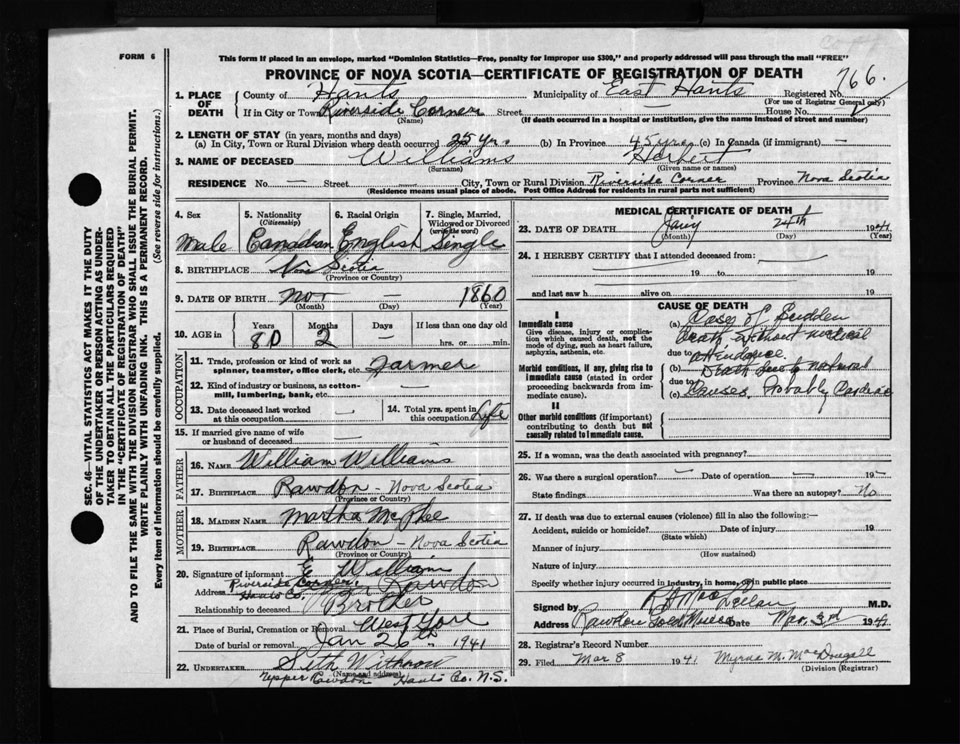 FORM 6
This form if placed in an envelope, marked "Dominion Statistics—Free, penalty for improper use $300," and properly addressed will pass through the mail "FREE"
PROVINCE OF NOVA SCOTIA—CERTIFICATE OF REGISTRATION OF DEATH
766
1. PLACE OF DEATH
County of Hants Municipality of East Hants Registered No.
(For use of Registrar General only)
If in City or Town Riverside Corner Street House No.
(Name) (If death occurred in a hospital or institution, give the name instead of street and number)
2. LENGTH OF STAY (in years, months and days)
(a) In City, Town or Rural Division where death occurred 25 yrs (b) In Province 45 yrs (c) In Canada (if immigrant) —
3. NAME OF DECEASED Williams Herbert
(Surname) (Given name or names)
RESIDENCE No. — Street — City, Town or Rural Division Riverside Corner Province Nova Scotia
(Residence means usual place of abode. Post Office Address for residents in rural parts not sufficient)
4. Sex 5. Nationality (Citizenship) 6. Racial Origin 7. Single, Married, Widowed or Divorced (write the word)
Male Canadian English Single
8. BIRTHPLACE Nova Scotia
(Province or Country)
9. DATE OF BIRTH Nov — 1860
(Month) (Day) (Year)
10. AGE in Years Months Days If less than one day old
80 2 — hrs. or min.
OCCUPATION
11. Trade, profession or kind of work as spinner, teamster, office clerk, etc. Farmer
12. Kind of industry or business, as cotton-mill, lumbering, bank, etc. —
13. Date deceased last worked at this occupation — 14. Total yrs. spent in this occupation Life
15. If married give name of wife or husband of deceased —
FATHER
16. NAME William Williams
17. BIRTHPLACE Rawdon - Nova Scotia
(Province or Country)
MOTHER
18. MAIDEN NAME Martha McPhee
19. BIRTHPLACE Rawdon - Nova Scotia
(Province or Country)
20. Signature of informant E. William
Address Riverside Corner, Hants Co. Rawdon
Relationship to deceased Brother
21. Place of Burial, Cremation or Removal West Gore
Date of burial or removal Jan 26th 1941
22. UNDERTAKER Seth Withrow
(Name and address)
Upper Rawdon Hants Co. N.S.
MEDICAL CERTIFICATE OF DEATH
23. DATE OF DEATH Jany 24th 1941
(Month) (Day) (Year)
24. I HEREBY CERTIFY that I attended deceased from:
19 to 19
and last saw h alive on 19
CAUSE OF DEATH
I
Immediate cause
Give disease, injury or complication which caused death, not the mode of dying, such as heart failure, asphyxia, asthenia, etc.
(a) Case of Sudden
Death without medical
due to attendance.
Morbid conditions, if any, giving rise to immediate cause (stated in order proceeding backwards from immediate cause).
(b) Death due to natural
due to
(c) Causes, Probably Cardiac
II
Other morbid conditions (if important) contributing to death but not causally related to immediate cause.
25. If a woman, was the death associated with pregnancy?
26. Was there a surgical operation? — Date of operation — 19
State findings Was there an autopsy? No
27. If death was due to external causes (violence) fill in also the following:—
Accident, suicide or homicide? Date of injury 19
(State which)
Manner of injury
(How sustained)
Nature of injury
Specify whether injury occurred in industry, in home, or in public place
Signed by MacLellan M.D.
Address Rawdon Gold Mines Date Mar. 3rd 1941
28. Registrar's Record Number
29. Filed Mar 8 1941 Myrna M. MacDougall
(Division Registrar)
SEC. 46—VITAL STATISTICS ACT MAKES IT THE DUTY
OF THE UNDERTAKER OR PERSON ACTING AS UNDER-
TAKER TO OBTAIN ALL THE PARTICULARS REQUIRED
IN THE "CERTIFICATE OF REGISTRATION OF DEATH"
AND TO FILE THE SAME WITH THE DIVISION REGISTRAR WHO SHALL ISSUE THE BURIAL PERMIT.
WRITE PLAINLY WITH UNFADING INK. THIS IS A PERMANENT RECORD.
Every item of information should be carefully supplied. (See reverse side for instructions.)